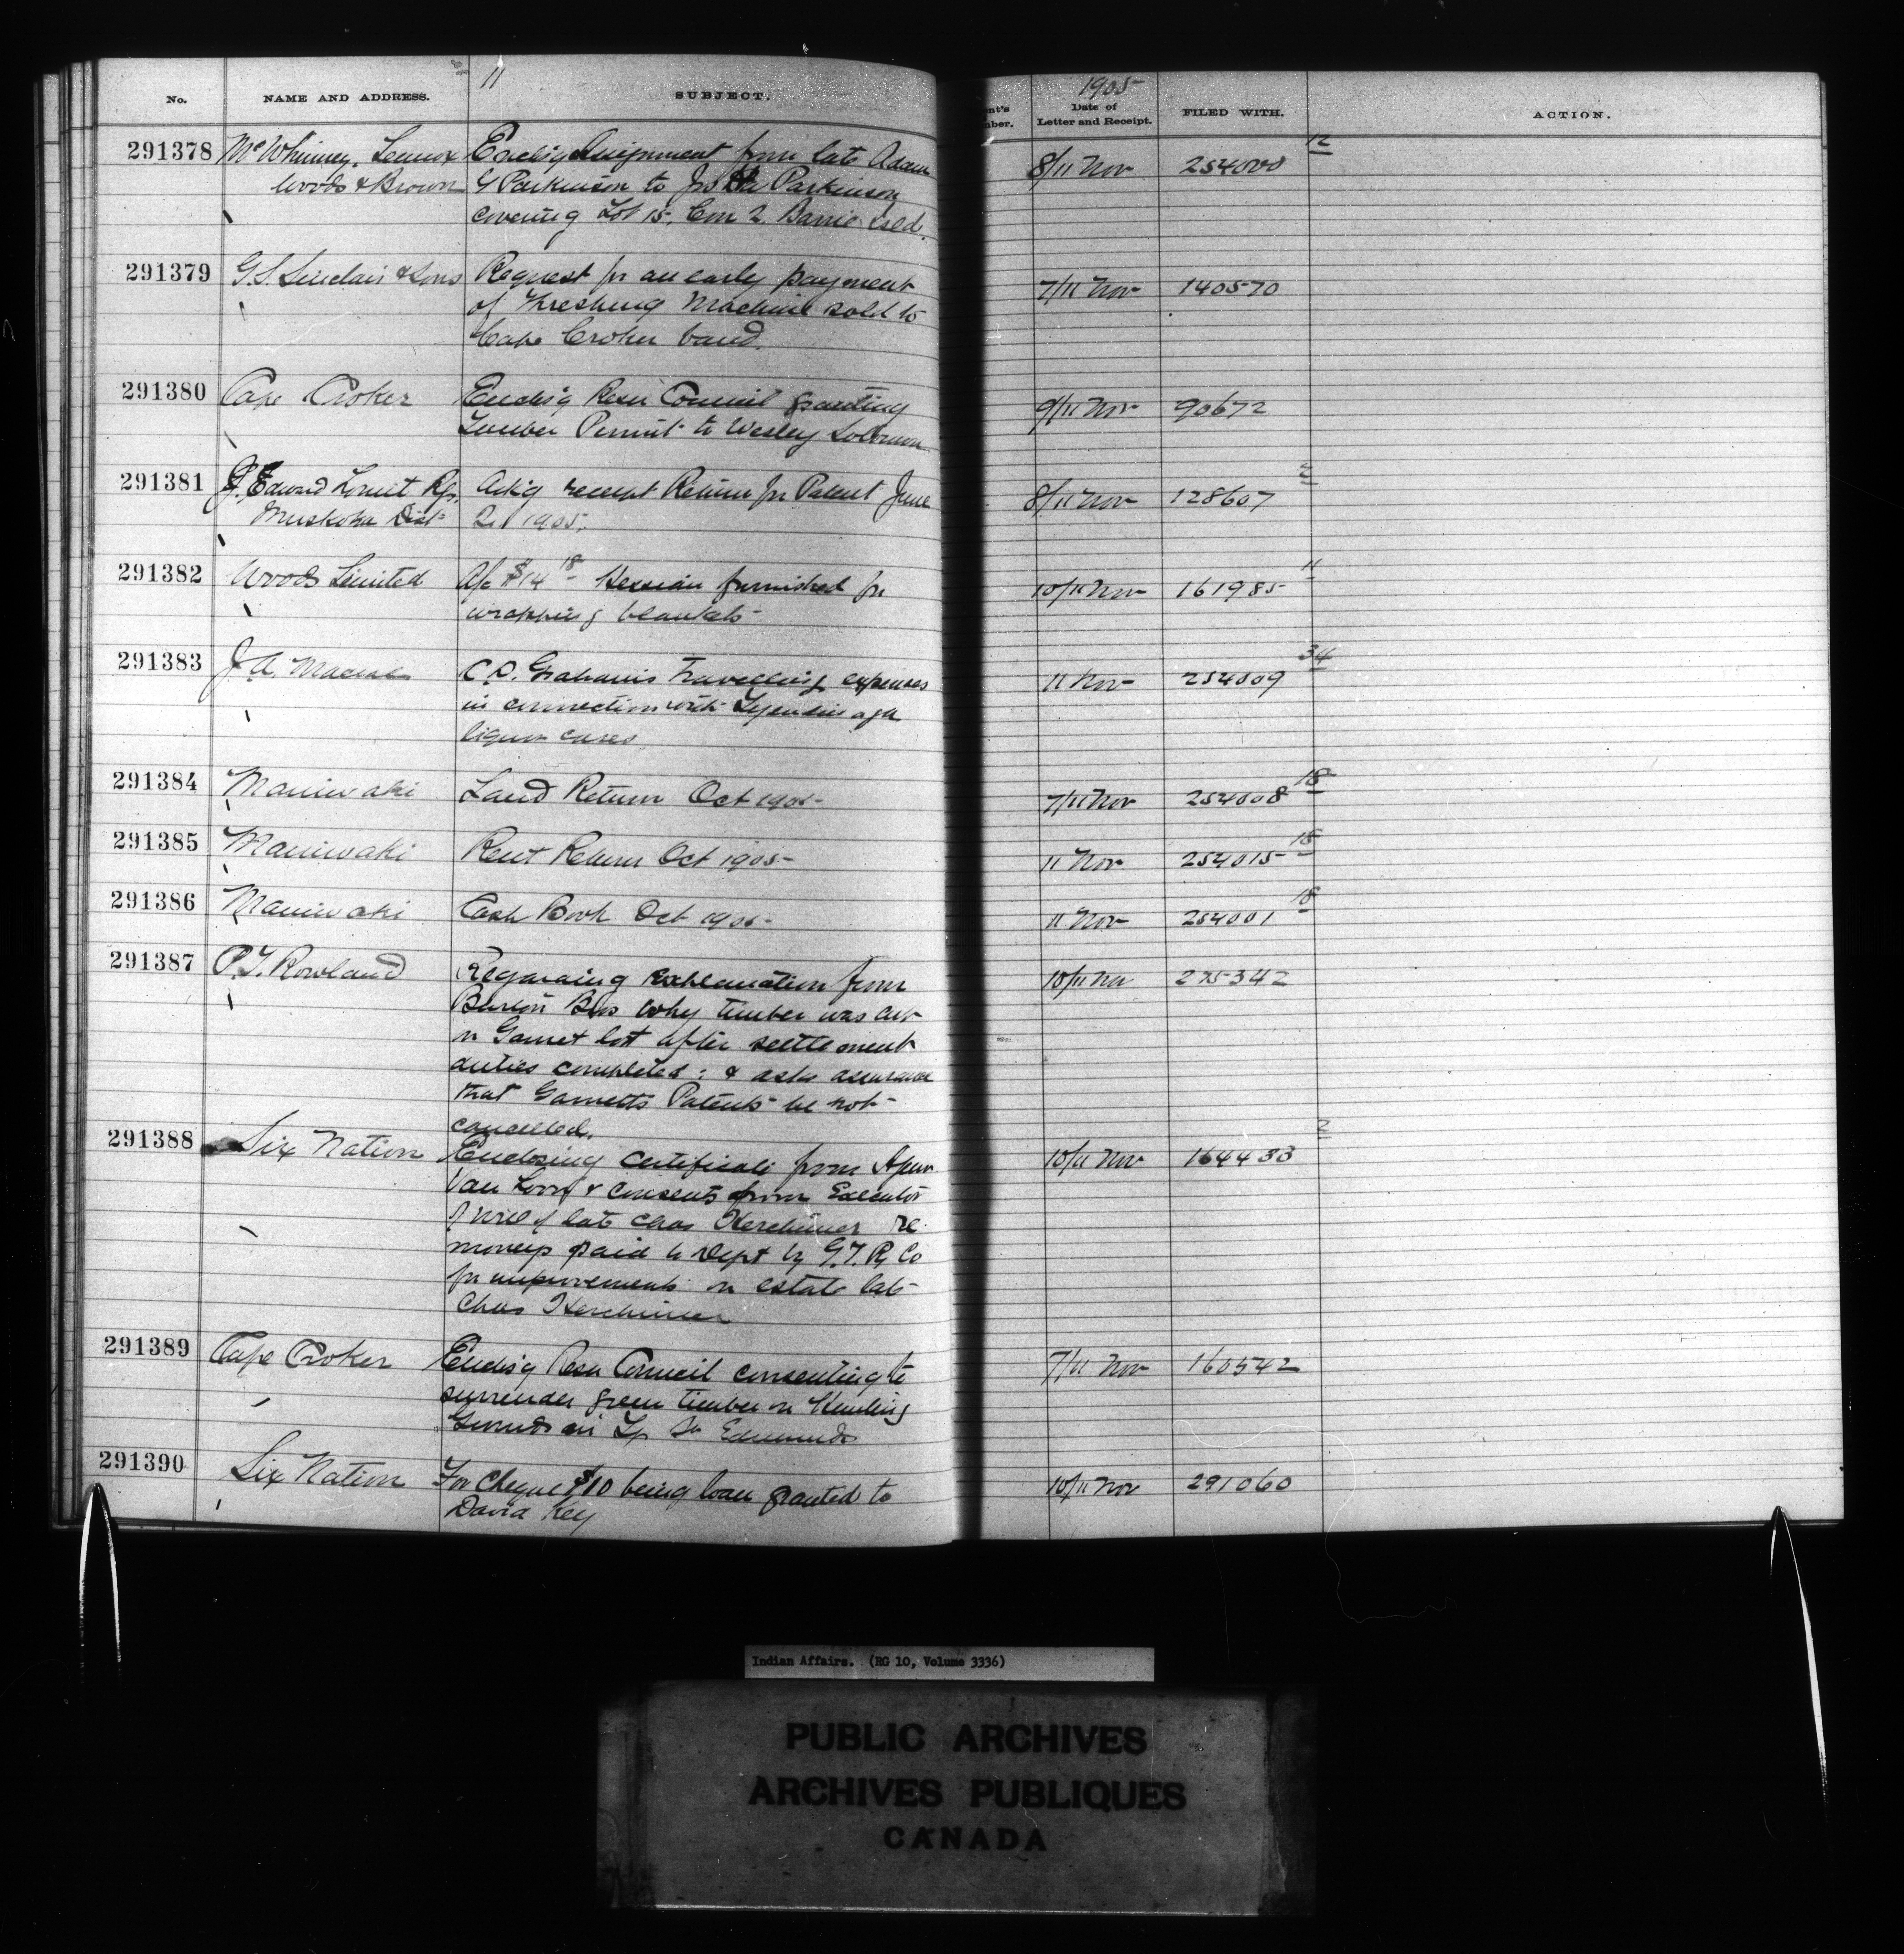 11
1905
No. NAME AND ADDRESS. SUBJECT. ent's mber. Date of Letter and Receipt. FILED WITH. ACTION.
291378 McWhinney, Lennox Enclsg Assignment from late Adam 8/11 Nov 254000 12
Woods & Brown G Parkinson to Parkinson
covering Lot 15, Con 2. Barrie Isld.
291379 G.S. Sinclair & Sons Request for an early payment 7/11 Nov 140570
of Threshing Machine sold to
Cape Croker band.
291380 Cape Croker Enclsg Resn Council granting 9/11 Nov 90672
Lumber Permit to Wesley Solomon
291381 J. Edward Rgr. Ackg receipt Return for Patent June 8/11 Nov 128607 2
Muskoka Dist 2 1905.
291382 Woods Limited A/c $14 18 Hessian furnished for 10/11 Nov 161985 11
wrapping blankets
291383 J.A. Macrae C.D. Graham's travelling expenses 11 Nov 254009 34
in connection with Tyendinaga
liquor cases
291384 Maniwaki Land Return Oct 1905 7/11 Nov 254008 18
291385 Maniwaki Rent Return Oct 1905 11 Nov 254015 18
291386 Maniwaki Cash Book Oct 1905 11 Nov 254001 18
291387 P.T. Rowland Regarding explanation from 10/11 Nov 275342
Bros why timber was cut
on Garnet lot after settlement
duties completed; & asks assurance
that Garnetts Patents be not
cancelled.
291388 Six Nation Enclosing certificate from 10/11 Nov 164433 2
Van Loon & consents from Executor
of will of late Chas Kerchimer re
moneys paid to Dept by G.T. Ry Co
for improvements on estate late
Chas Kerchimer
291389 Cape Croker Enclsg Resn Council consenting to 7/11 Nov 160542
surrender green timber on Hunting
Grounds in Tp St Edmunds
291390 Six Nation For Cheque $10 being loan granted to 10/11 Nov 291060
David Key
Indian Affairs. (RG 10, Volume 3336)
PUBLIC ARCHIVES
ARCHIVES PUBLIQUES
CANADA